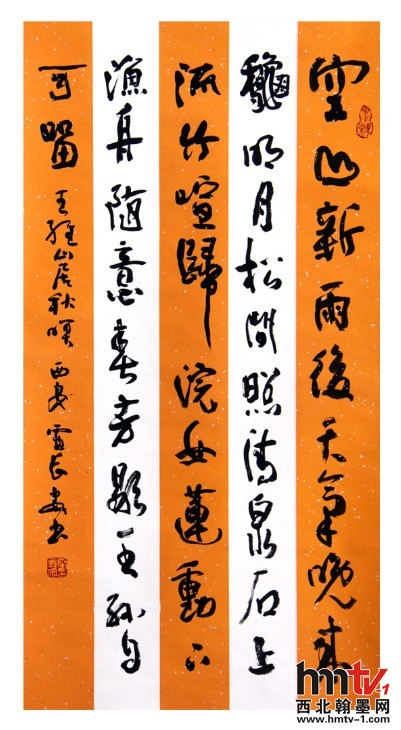 空山新雨後天氣晚来
龝明月松間照清泉石上
流竹喧歸浣女蓮動下
漁舟隨意春芳歇王孫自
可留 王維山居秋暝 西安雷长安书
hmtv-1
西北翰墨网
www.hmtv-1.com